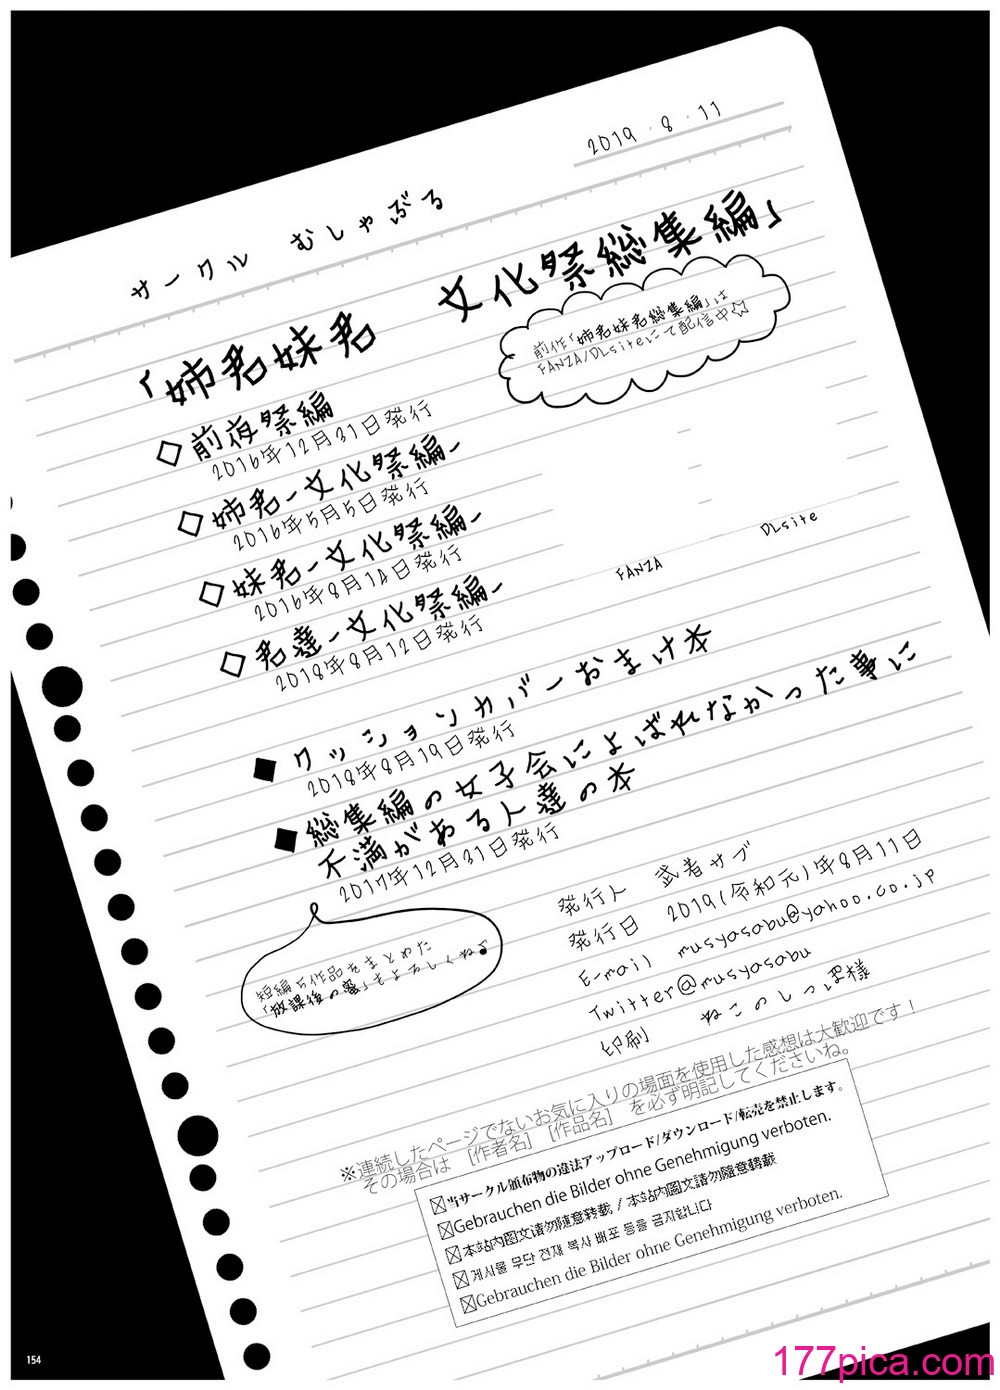 2019.8.11
サークル むしゃぶる
「姉君妹君 文化祭総集編」
前作「姉君妹君総集編」は
FANZA/DLsiteにて配信中☆
◇前夜祭編
2016年12月31日発行
◇姉君-文化祭編-
2016年5月5日発行
◇妹君-文化祭編-
2016年8月14日発行
◇君達-文化祭編-
2018年8月12日発行
FANZA
DLsite
◆クッションカバーおまけ本
2018年8月19日発行
◆総集編の女子会によばれなかった事に
不満がある人達の本
2017年12月31日発行
短編5作品をまとめた
「放課後の蜜」もよろしくね♪
発行人 武者サブ
発行日 2019(令和元)年8月11日
E-mail musyasabu@yahoo.co.jp
Twitter@musyasabu
印刷 ねこのしっぽ様
※連続したページでないお気に入りの場面を使用した感想は大歓迎です!
その場合は [作者名] [作品名] を必ず明記してくださいね。
☒当サークル頒布物の違法アップロード/ダウンロード/転売を禁止します。
☒Gebrauchen die Bilder ohne Genehmigung verboten.
☒本站内图文请勿随意转载 / 本站内図文請勿隨意轉載
☒게시물 무단 전재 복사 배포 등을 금지합니다
☒Gebrauchen die Bilder ohne Genehmigung verboten.
154
177pica.com